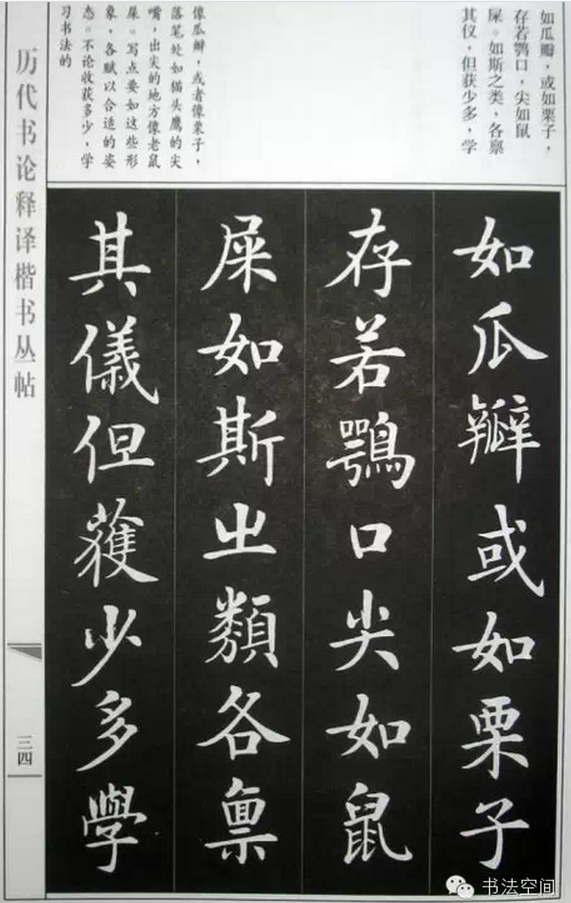 如瓜瓣，或如栗子，
存若鹗口，尖如鼠
屎。如斯之类，各禀
其仪，但获少多，学
像瓜瓣，或者像栗子，
落笔处如猫头鹰的尖
嘴，出尖的地方像老鼠
屎。写点要如这些形
象，各赋以合适的姿
态。不论收获多少，学
习书法的
如瓜瓣或如栗子
存若鶚口尖如鼠
屎如斯出類各禀
其儀但獲少多學
历代书论释译楷书丛帖
三四
书法空间